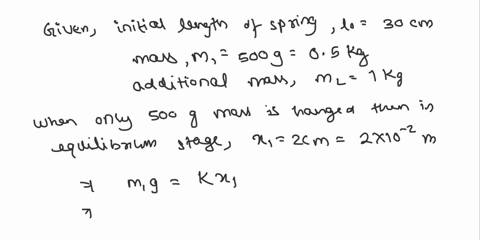 Given, initial length of spring, l0 = 30 cm
mass, m1 = 500 g = 0.5 kg
additional mass, m2 = 1 kg
when only 500 g mass is hanged then in
equilibrium stage, x1 = 2cm = 2×10^-2 m
⇒ m1g = Kx1
⇒